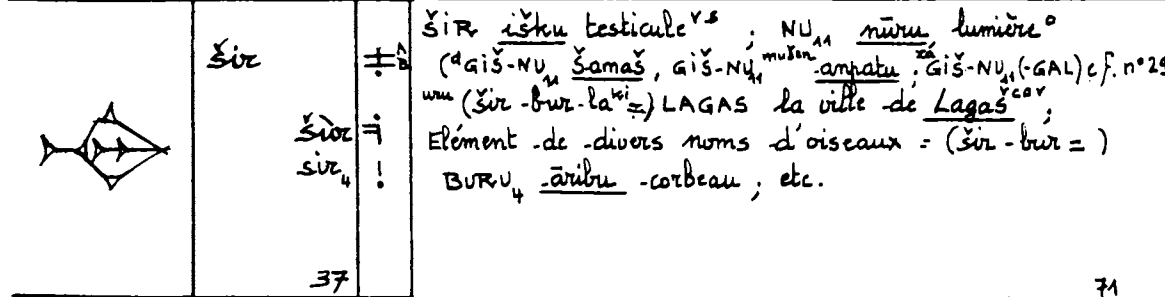 šir
šìr
sir₄
37
ŠIR išku testicule ; NU₁₁ nūru lumière
(ᵈGIŠ-NU₁₁ Šamaš, GIŠ-NU₁₁ᵐᵘšᵉⁿ anpatu ; GIŠ-NU₁₁(-GAL) cf. n°29
ᵘʳᵘ (šir-bur-laᵏⁱ =) LAGAS la ville de Lagaš ;
Elément de divers noms d'oiseaux = (šir-bur = )
BURU₄ āribu corbeau ; etc.
71